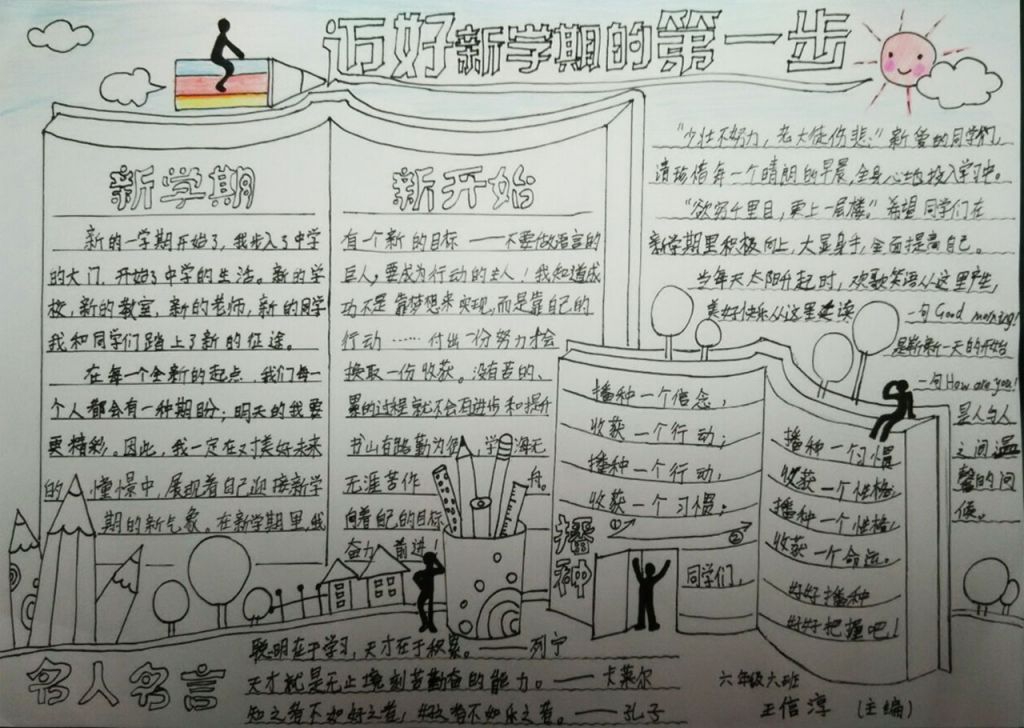 迈好新学期的第一步
新学期
新的一学期开始了，我步入了中学
的大门，开始了中学的生活。新的学
校，新的教室，新的老师，新的同学
我和同学们踏上了新的征途。
在每一个全新的起点，我们每一
个人都会有一种期盼：明天的我要
更精彩。因此，我一定在对美好未来
的憧憬中，展现着自己迎接新学
期的新气象。在新学期里我
新开始
有一个新的目标——不要做语言的
巨人，要成为行动的主人！我知道成
功不是靠梦想来实现，而是靠自己的
行动……付出一份努力才会
换取一份收获。没有苦的、
累的过程就不会有进步和提升
书山有路勤为径，学海无
无涯苦作舟。
向着自己的目标
奋力前进！
"少壮不努力，老大徒伤悲；"亲爱的同学们，
请珍惜每一个晴朗的早晨，全身心地投入学习中。
"欲穷千里目，更上一层楼。"希望同学们在
新学期里积极向上，大显身手，全面提高自己。
当每天太阳升起时，欢歌笑语从这里产生，
美好快乐从这里连读
一句Good morning!
是崭新一天的开始
一句How are you!
是人与人
之间温
馨的问
候。
播种一个信念，
收获一个行动；
播种一个行动，
收获一个习惯；
① ②
播种
同学们，
播种一个习惯
收获一个性格；
播种一个性格，
收获一个命运。
好好播种
好好把握吧！
名人名言
聪明在于学习，天才在于积累。——列宁
天才就是无止境刻苦勤奋的能力。——卡莱尔
知之者不如好之者，好之者不如乐之者。——孔子
六年级六班
王信淳（主编）